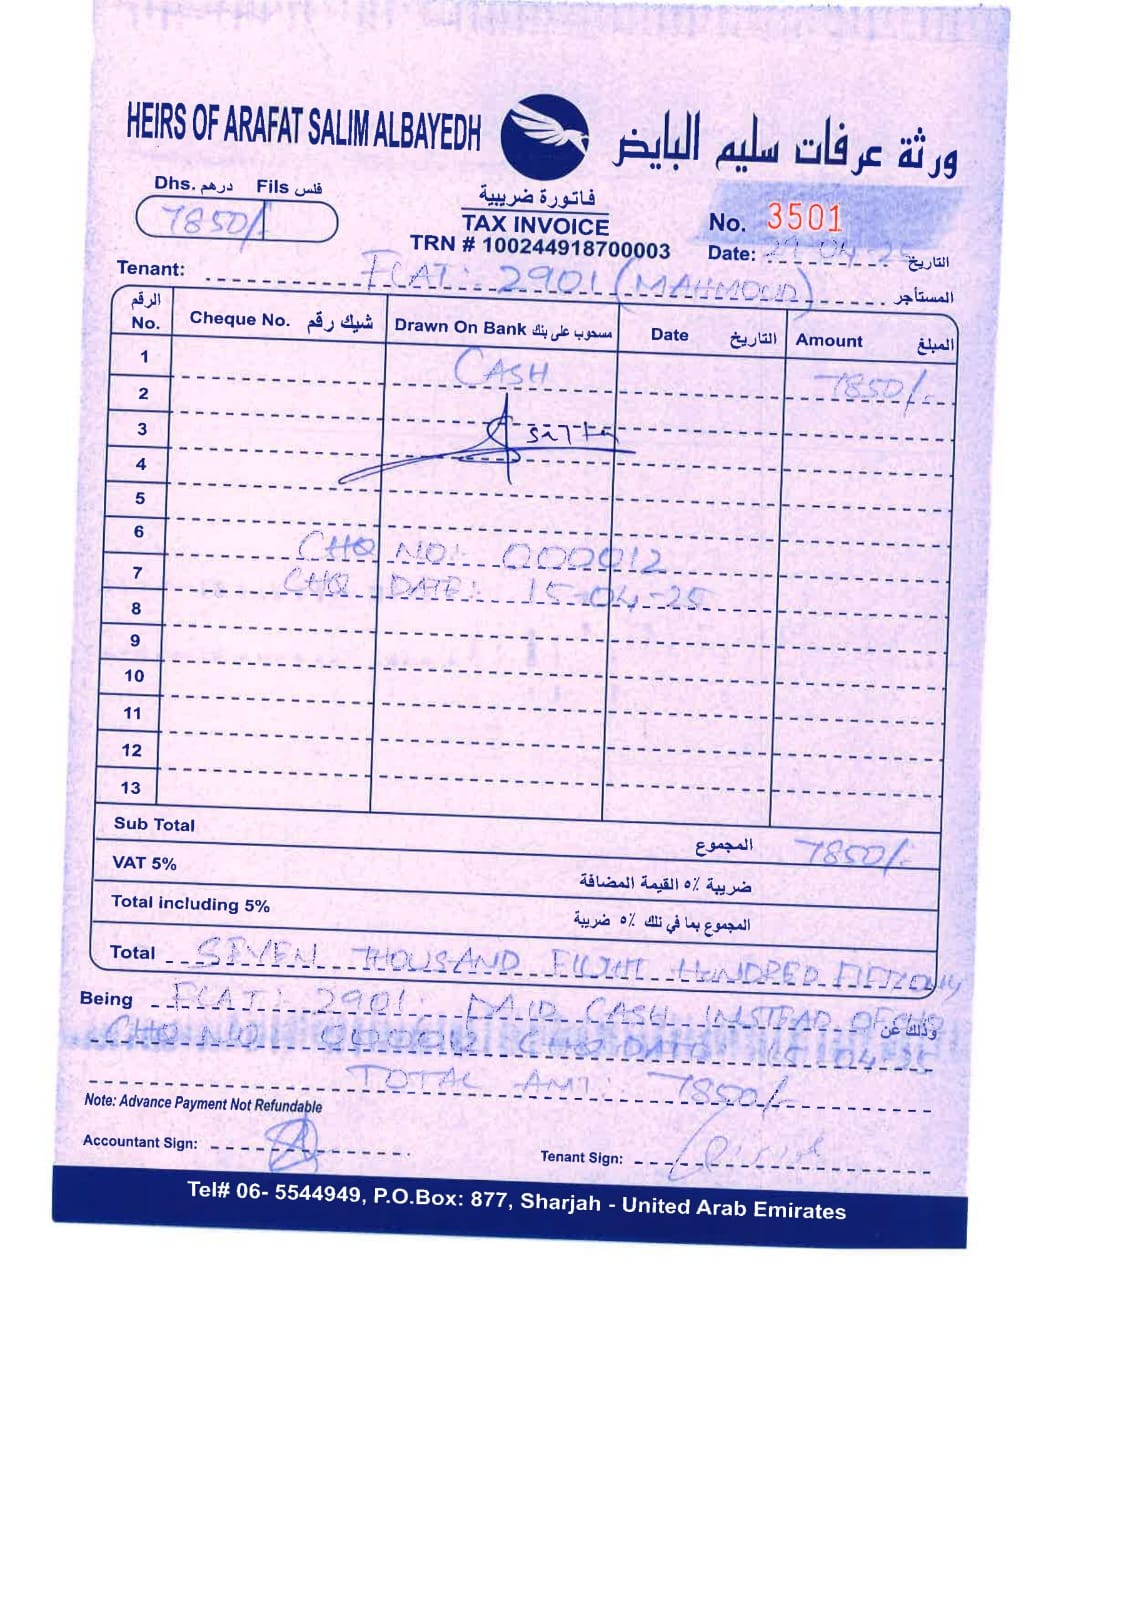 HEIRS OF ARAFAT SALIM ALBAYEDH ورثة عرفات سليم البايض
Dhs. درهم Fils فلس
7850/-
فاتورة ضريبية
TAX INVOICE
TRN # 100244918700003
No. 3501
Date: 29-04-25 التاريخ
Tenant: FLAT: 2901 (MAHMOUD) المستأجر
الرقم No. Cheque No. شيك رقم Drawn On Bank مسحوب على بنك Date التاريخ Amount المبلغ
1 CASH 7850/-
2
3
4
5
6 CHQ NO: 000012
7 CHQ DATE: 15-04-25
8
9
10
11
12
13
Sub Total المجموع 7850/-
VAT 5% ضريبة ٥٪ القيمة المضافة
Total including 5% المجموع بما في تلك ٥٪ ضريبة
Total SEVEN THOUSAND EIGHT HUNDRED FIFTY ONLY
Being FLAT: 2901. PAID CASH INSTEAD OF CHQ وذلك عن
CHQ NO: 000012 CHQ DATE 15-04-25
TOTAL AMT: 7850/-
Note: Advance Payment Not Refundable
Accountant Sign:
Tenant Sign:
Tel# 06- 5544949, P.O.Box: 877, Sharjah - United Arab Emirates